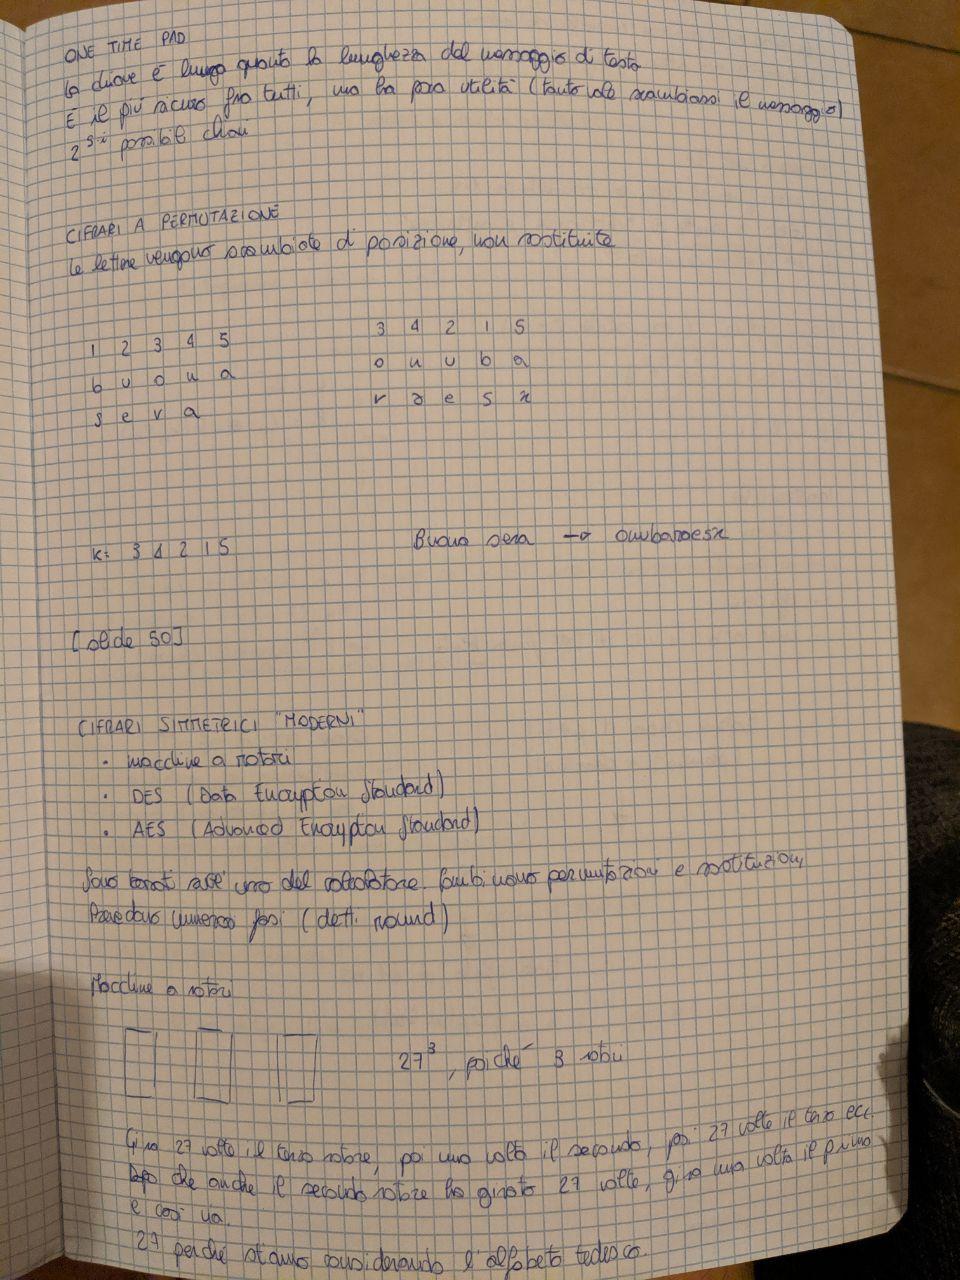 ONE TIME PAD
la chiave è lunga quanto la lunghezza del messaggio di testo
È il più sicuro fra tutti, ma ha poca utilità (tanto vale scambiarsi il messaggio)
possibili chiavi
CIFRARI A PERMUTAZIONE
le lettere vengono scambiate di posizione, non sostituite
1 2 3 4 5
b u o n a
s e r a
3 4 2 1 5
o n u b a
r a e s x
K: 3 4 2 1 5
Buona sera → onubaraesx
[slide 50]
CIFRARI SIMMETRICI "MODERNI"
• macchine a rotori
• DES (Data Encryption Standard)
• AES (Advanced Encryption Standard)
Sono basati sull' uso del calcolatore. Combinano permutazioni e sostituzioni,
Prevedono numerose fasi (dette round)
Macchine a rotori
27³, poiché 3 rotori
Gira 27 volte il terzo rotore, poi una volta il secondo, poi 27 volte il terzo ecc.
Dopo che anche il secondo rotore ha girato 27 volte, gira una volta il primo
e così via.
27 perché stiamo considerando l'alfabeto tedesco.